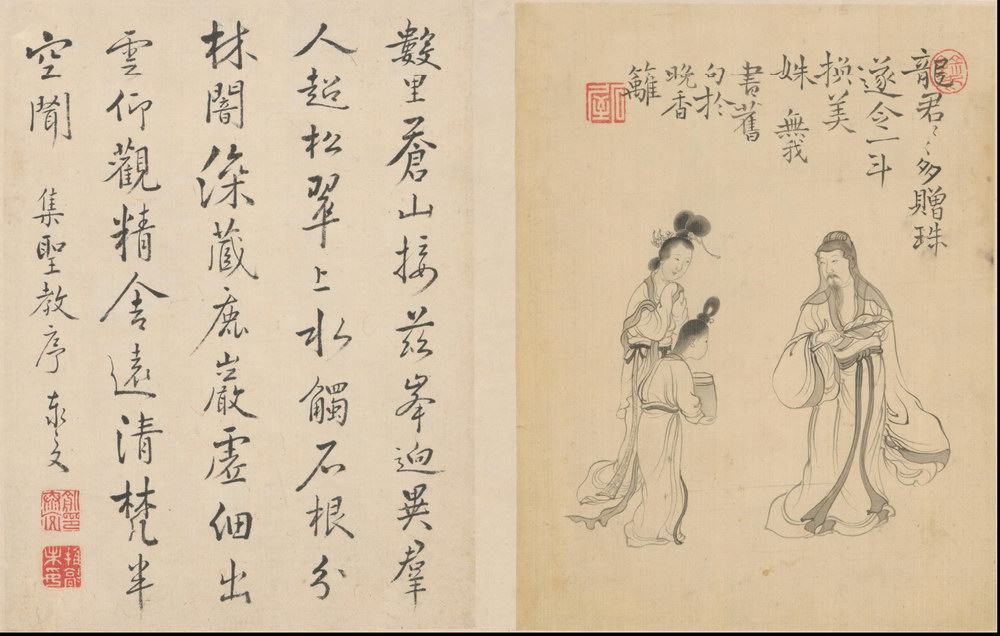 龍君〻〻多贈珠
遂令一斗
換美
姝 無我
書舊
句於
晚香
籬
數里蒼山接茲峯迥異羣
人超松翠上水觸石根分
林闇深藏鹿巖虛細出
雲仰觀精舍遠清梵半
空聞 集聖教序